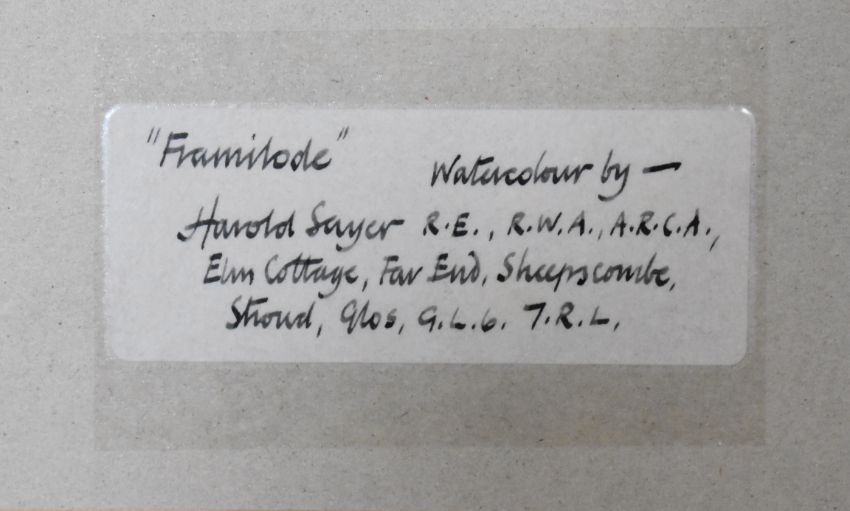 "Framilode"
Watercolour by —
Harold Sayer R.E., R.W.A., A.R.C.A.,
Elm Cottage, Far End, Sheepscombe,
Stroud, Glos, G.L.6. 7.R.L,